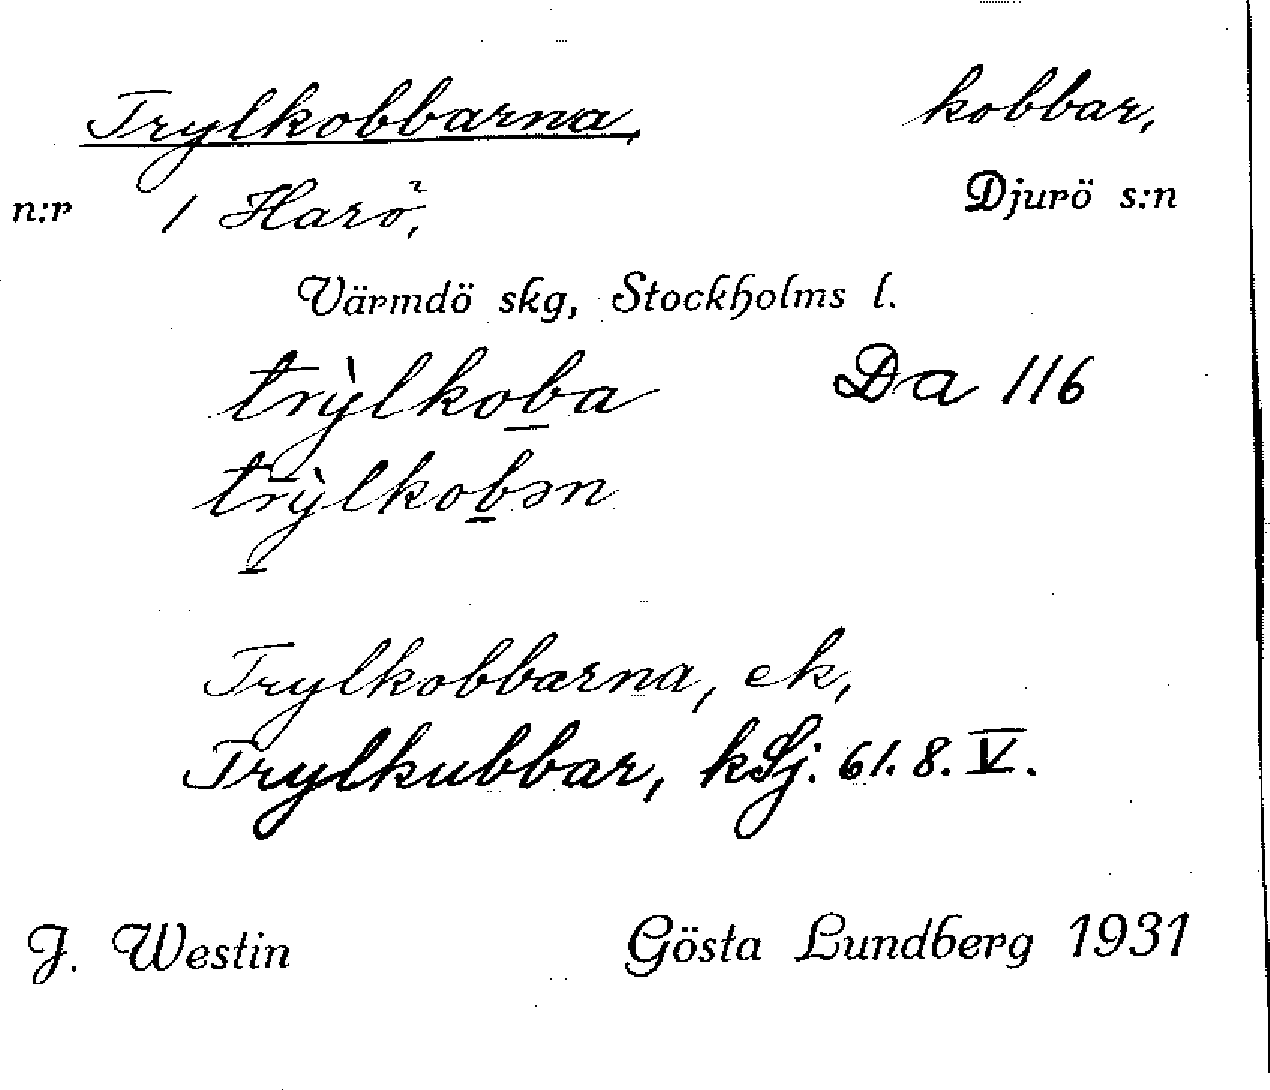 Trylkobbarna, kobbar,
n:r 1 Harö, Djurö s:n
Värmdö skg, Stockholms l.
trỳlkoba Da 116
trỳlkobən
Trylkobbarna, ek,
Trylkubbar, kSj. 61. 8. V.
J. Westin Gösta Lundberg 1931